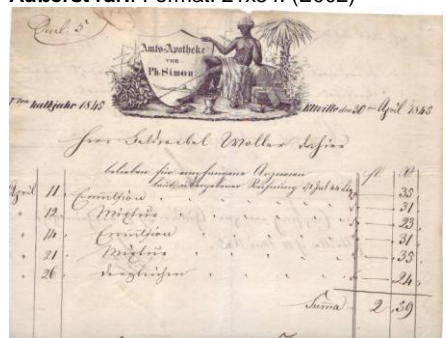 Äußerst rar!! Format: 21x34. (2002)
Amts-Apotheke
von
Ph. Simon
halbjahr 1845
Eltville den 30 April 1845
Herr Feldwebel Woller dahier
belieben für empfangene Arzneien
laut übergebener Rechnung
fl. Xr.
April 11. Emultion 35
" 12. Mixtur 31
23
" 14. Emultion 31
" 21. Mixtur 35
" 26. desgleichen 24
Summa 2 59